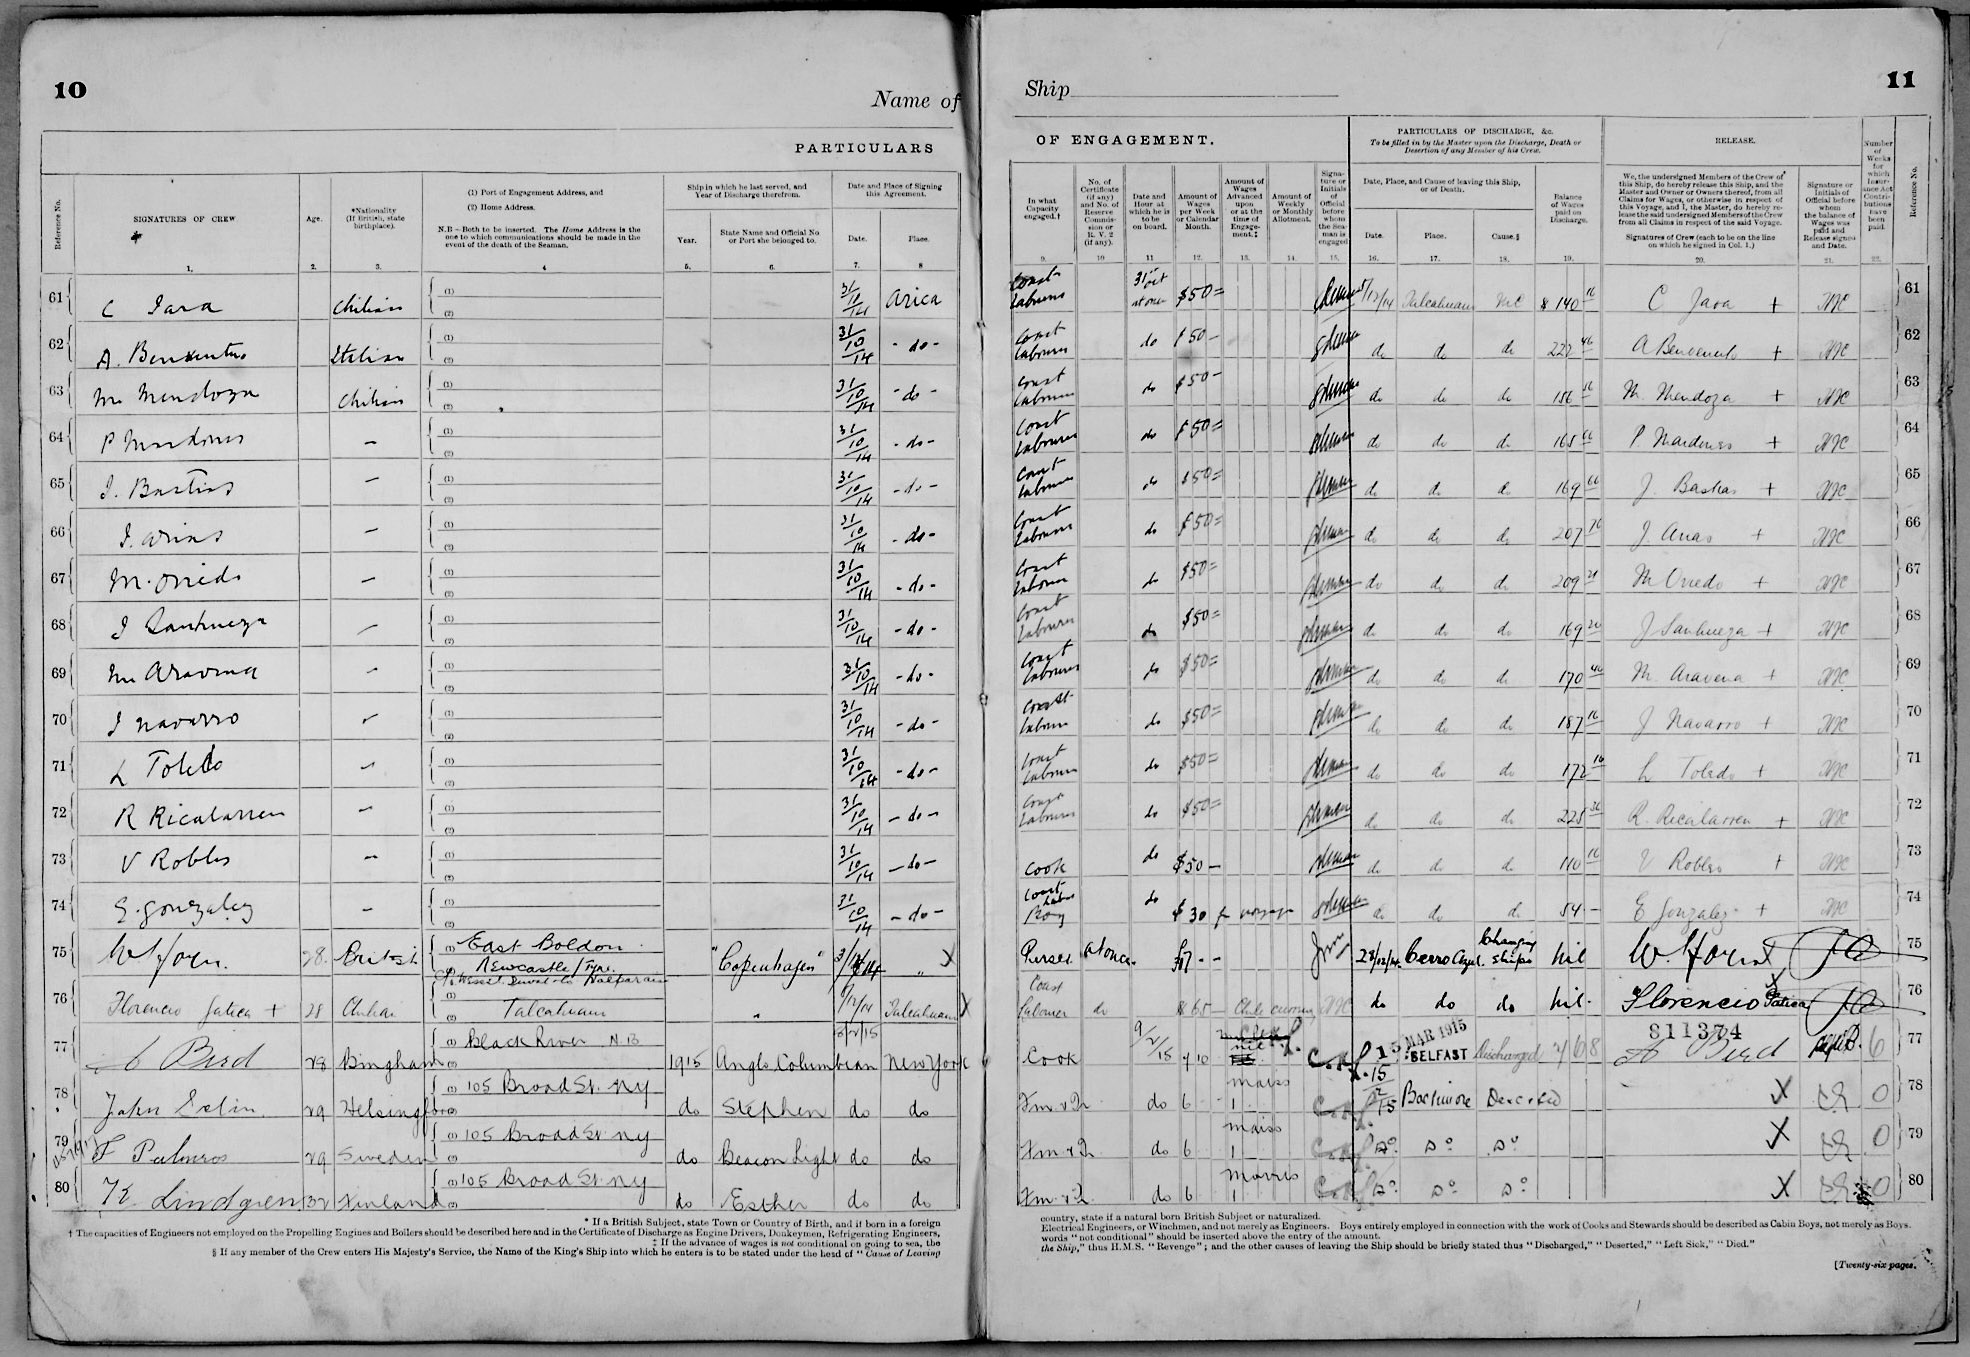 10
Name of
PARTICULARS
Reference No.
SIGNATURES OF CREW
Age.
*Nationality
(If British, state
birthplace).
(1) Port of Engagement Address, and
(2) Home Address.
N.B.—Both to be inserted. The Home Address is the
one to which communications should be made in the
event of the death of the Seaman.
Ship in which he last served, and
Year of Discharge therefrom.
Year.
State Name and Official No
or Port she belonged to.
Date and Place of Signing
this Agreement.
Date.
Place.
1. 2. 3. 4 5. 6. 7. 8
61 C Jara Chilian (1) (2) 31/10/14 Arica
62 A. Benvenuto Italian (1) (2) 31/10/14 - do -
63 M Mendoza Chilian (1) (2) 31/10/14 - do -
64 P Mardones — (1) (2) 31/10/14 - do -
65 J. Bastias — (1) (2) 31/10/14 - do -
66 J. Arias — (1) (2) 31/10/14 - do -
67 M. Oviedo — (1) (2) 31/10/14 - do -
68 J Sanhueza — (1) (2) 31/10/14 - do -
69 M Aravena — (1) (2) 31/10/14 - do -
70 J Navarro — (1) (2) 31/10/14 - do -
71 L Toledo — (1) (2) 31/10/14 - do -
72 R Ricalarren — (1) (2) 31/10/14 - do -
73 V Robles — (1) (2) 31/10/14 - do -
74 E. Gonzalez — (1) (2) 31/10/14 - do -
75 28. British (1) East Boldon
Newcastle/Tyne. "Copenhagen" " X
76 Florencio Gatica + 28 Chilian (1)
(2) Talcahuano " /12/14 Talcahuano X
77 Bird 28 Bingham (1) Black River N.B
(2) 1915 Anglo Columbian New York
78 John 29 Helsingfors (1) 105 Broad St. NY
(2) do Stephen do do
79 F 29 Sweden (1) 105 Broad St. NY
(2) do Beacon Light do do
80 K. Lindgren 32 Finland (1) 105 Broad St. NY
(2) do Esther do do
* If a British Subject, state Town or Country of Birth, and if born in a foreign
† The capacities of Engineers not employed on the Propelling Engines and Boilers should be described here and in the Certificate of Discharge as Engine Drivers, Donkeymen, Refrigerating Engineers,
‡ If the advance of wages is not conditional on going to sea, the
§ If any member of the Crew enters His Majesty's Service, the Name of the King's Ship into which he enters is to be stated under the head of "Cause of Leaving
Ship
11
OF ENGAGEMENT.
PARTICULARS OF DISCHARGE, &c.
To be filled in by the Master upon the Discharge, Death or
Desertion of any Member of his Crew.
RELEASE.
Number
of
Weeks
for
which
Insur-
ance Act
Contri-
butions
have
been
paid.
Reference No.
In what
Capacity
engaged.†
No. of
Certificate
(if any)
and No. of
Reserve
Commis-
sion or
R. V. 2
(if any).
Date and
Hour at
which he is
to be
on board.
Amount of
Wages
per Week
or Calendar
Month.
Amount of
Wages
Advanced
upon
or at the
time of
Engage-
ment.‡
Amount of
Weekly
or Monthly
Allotment.
Signa-
ture or
Initials
of
Official
before
whom
the Sea-
man is
engaged
Date, Place, and Cause of leaving this Ship,
or of Death.
Date.
Place.
Cause.§
Balance
of Wages
paid on
Discharge.
We, the undersigned Members of the Crew of
this Ship, do hereby release this Ship, and the
Master and Owner or Owners thereof, from all
Claims for Wages, or otherwise in respect of
this Voyage, and I, the Master, do hereby re-
lease the said undersigned Members of the Crew
from all Claims in respect of the said Voyage.
Signatures of Crew (each to be on the line
on which he signed in Col. 1.)
Signature or
Initials of
Official before
whom
the balance of
Wages was
paid and
Release signed
and Date.
9. 10 11 12. 13. 14. 15. 16. 17. 18. 19. 20. 21. 22.
Coast
Labourer 31 Oct
at once $50= /12/14 Talcahuano $ 140 16 C Jara + 61
Coast
Labourer do $50 — do do do 222 46 A Benvenuto + 62
Coast
Labourer do $50 — do do do M. Mendoza + 63
Coast
Labourer do $50= do do do 168 66 P Mardones + 64
Coast
Labourer do $50= do do do 169 66 J. Bastias + 65
Coast
Labourer do $50= do do do 207 J. Arias + 66
Coast
Labourer do $50= do do do 209 M Oviedo + 67
Coast
Labourer do $50= do do do 169 J Sanhueza + 68
Coast
Labourer do $50= do do do 170 M. Aravena + 69
Coast
Labourer do $50= do do do 187 16 J Navarro + 70
Coast
Labourer do $50= do do do 172 16 L Toledo + 71
Coast
Labourer do $50= do do do 36 R. Ricalarren + 72
Cook do $50 — do do do 110 16 V Robles + 73
Coast
Labor
Boy do $30 p voyage do do do 54 — E Gonzalez + 74
Purser at once 28/12/14. Cerro Azul. Changing
ships nil 75
Coast
Labourer do $ 65 — Chile currency do do do nil. Florencio Gatica X 76
Cook 9/2/15 10 nil 15 MAR 1915
BELFAST Discharged 811374 Bird 6 77
Fm & Tr do 6 1 15/2/15 Baltimore Deserted X 0 78
Fm & Tr do 6 1 Do Do Do X 0 79
Fm & Tr do 6 1 Do Do Do X 0 80
country, state if a natural born British Subject or naturalized.
Electrical Engineers, or Winchmen, and not merely as Engineers. Boys entirely employed in connection with the work of Cooks and Stewards should be described as Cabin Boys, not merely as Boys.
words "not conditional" should be inserted above the entry of the amount.
the Ship," thus H.M.S. "Revenge"; and the other causes of leaving the Ship should be briefly stated thus "Discharged," "Deserted," "Left Sick," "Died."
[Twenty-six pages.